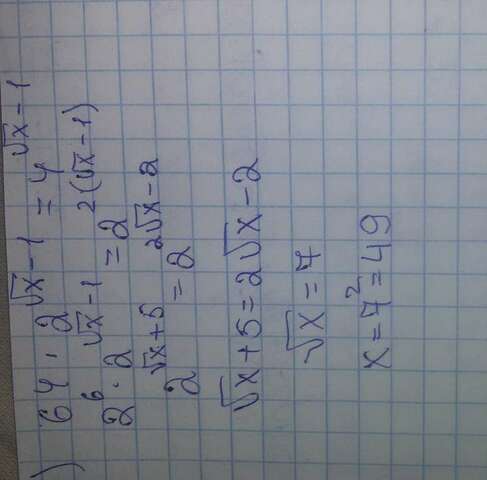 ) 64 · 2^(√x − 1) = 4^(√x − 1)
2^6 · 2^(√x − 1) = 2^(2(√x − 1))
2^(√x + 5) = 2^(2√x − 2)
√x + 5 = 2√x − 2
√x = 7
x = 7² = 49